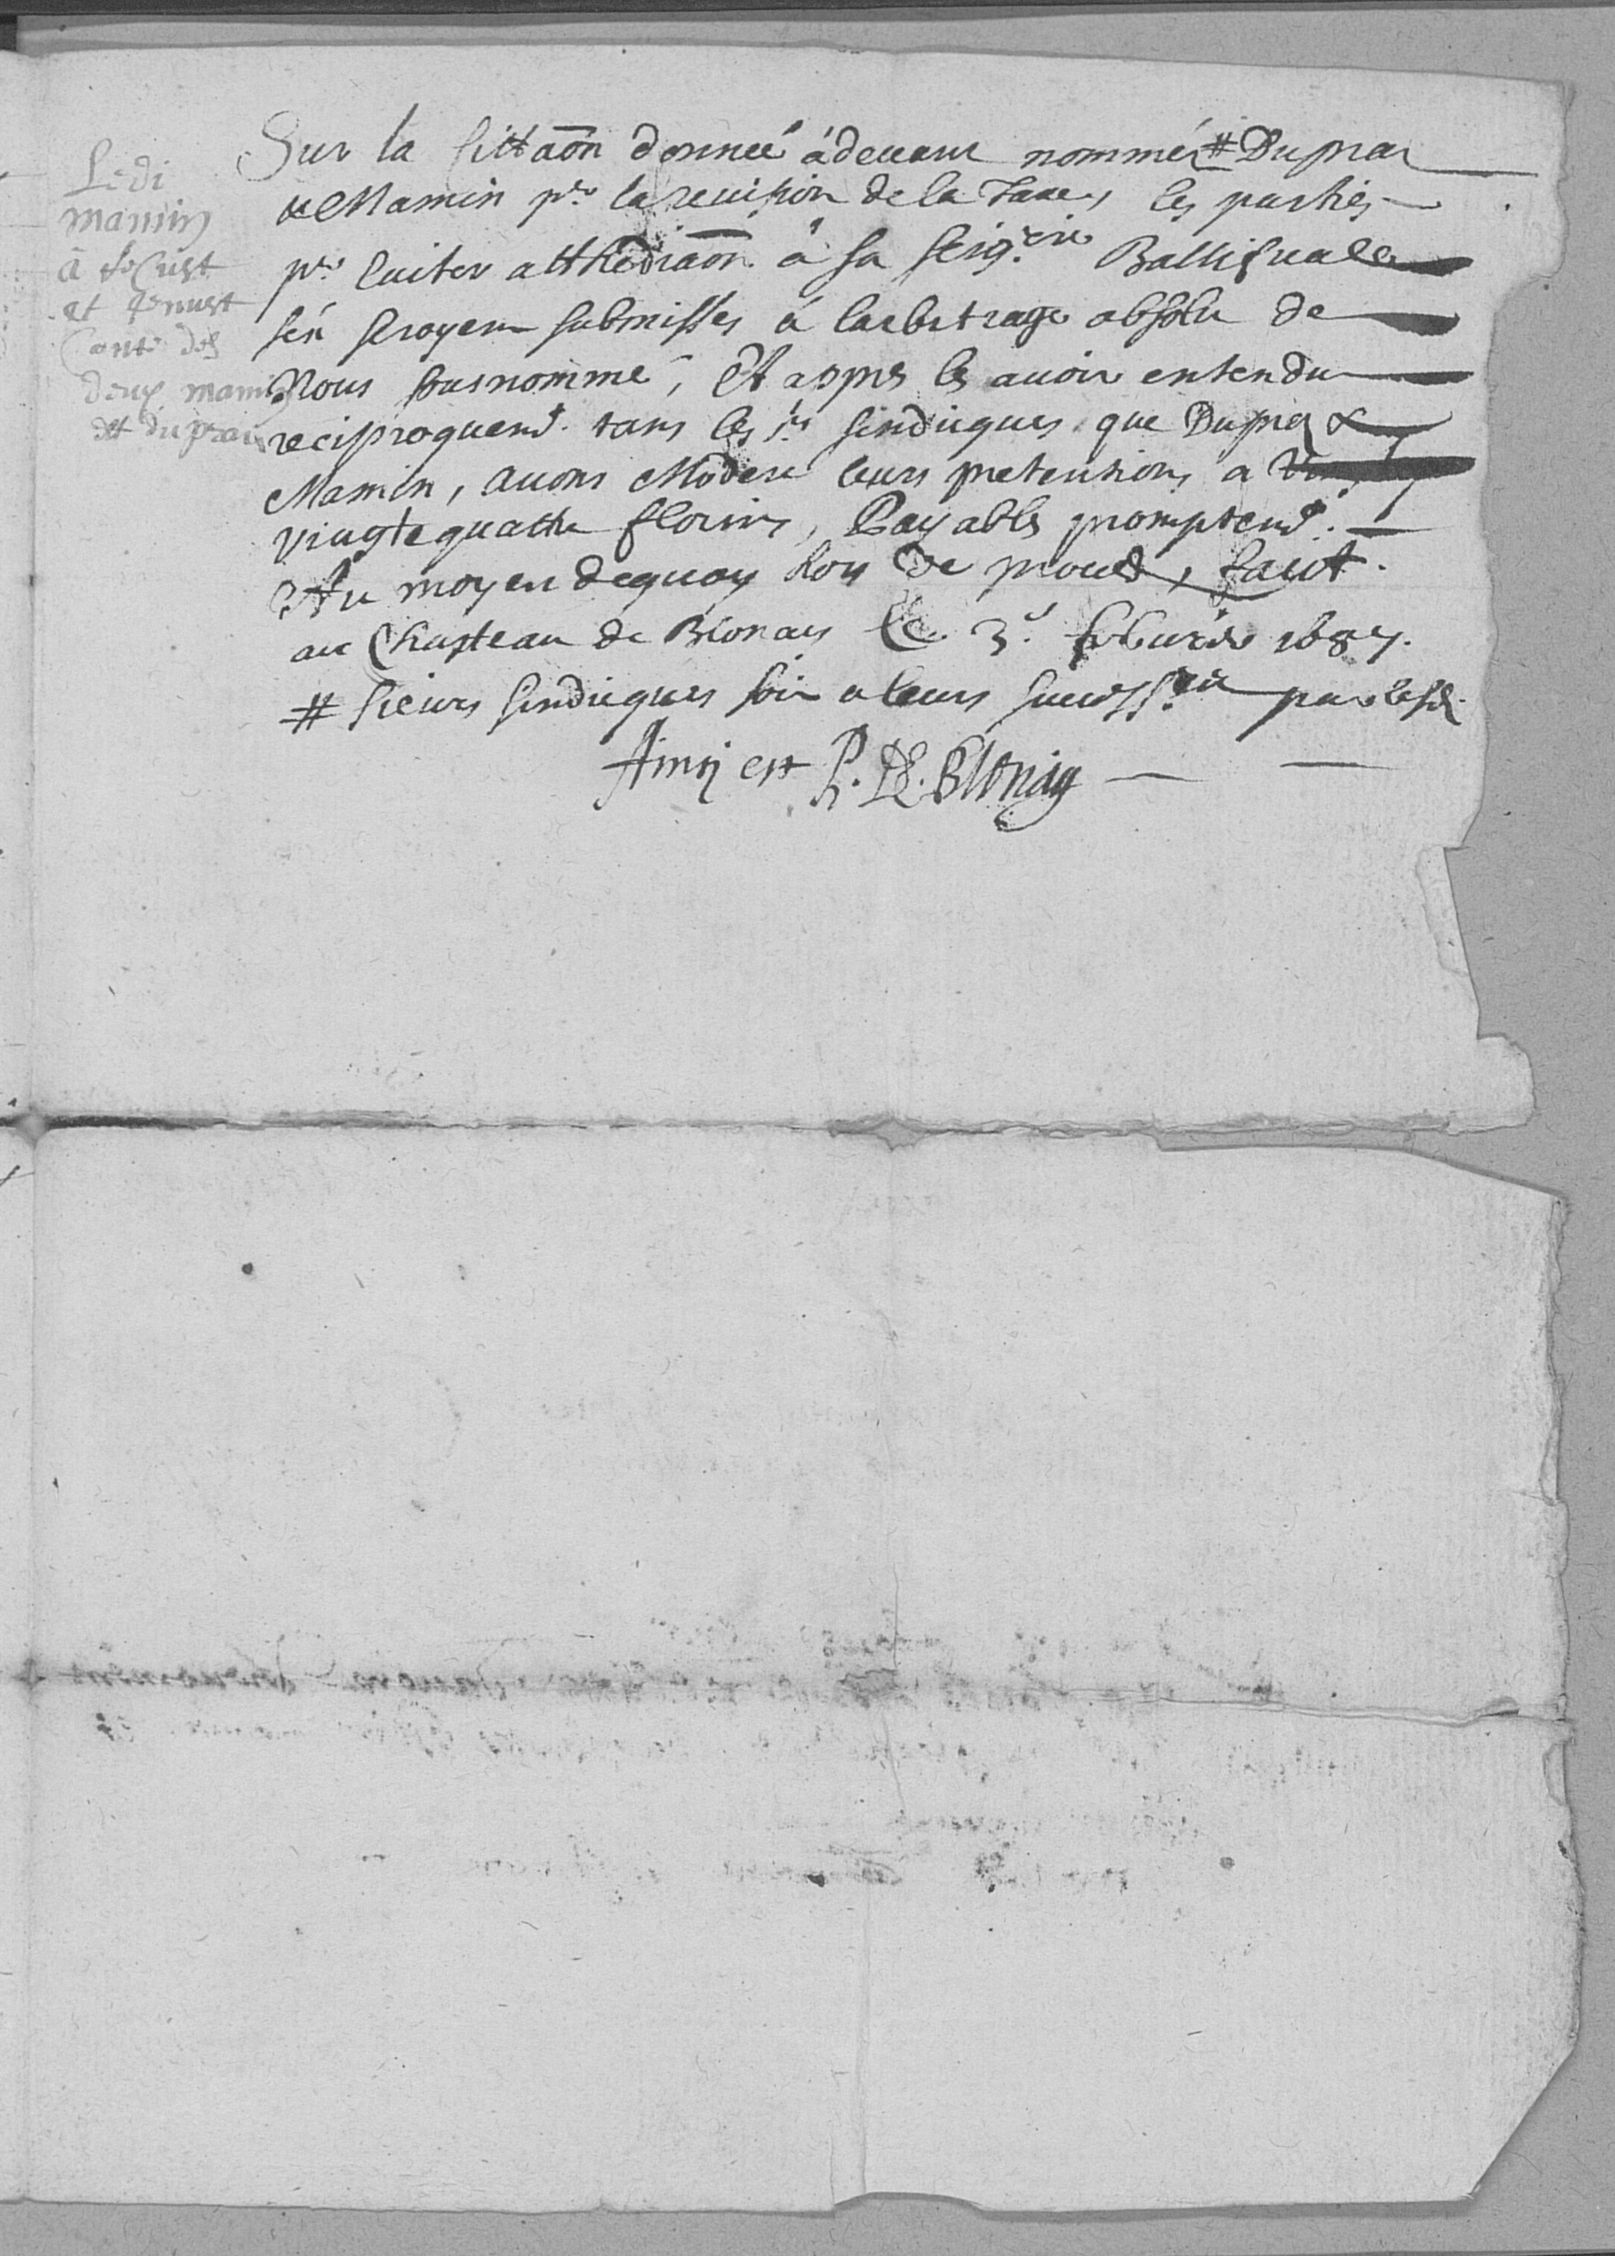 Ledi
mamin
à
et
Conte des
deux mamin
et dupraz
Sur la Cittaõn donnéé àdevant nommés # Dupraz
& Mamin pr la revision de la Taxe, les parties
pr Euiter atthediaõn à sa Seigrie Ballifuale
sen seroyent submisses à larbitrage absolu de
Nous sousnommé, Et appres les avoir entendu
reciproquemt. tans les srs sindicques que Dupraz &
Mamin, avons Moderé leurs pretentions a
vingte quattre florins, Payables promptemt.
Au moyen dequoy hors de proces, fait
au Chasteau de Blonay Le 3e. febvrier 1687.
# sieurs sindicques soit a leurs
Ainsi est P. DE. Blonay